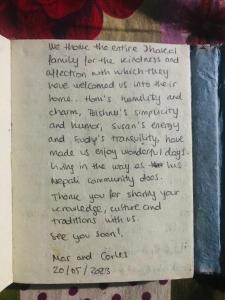 We thank the entire Dhakal
family for the kindness and
affection with which they
have welcomed us into their
home. Homi's humility and
charm, Bishnu's simplicity
and humor, Susan's energy
and Sudy's tranquility, have
made us enjoy wonderful days
living in the way as this
Nepali community does.
Thank you for sharing your
knowledge, culture and
traditions with us.
See you soon!
Mar and Carles
20/05/2023